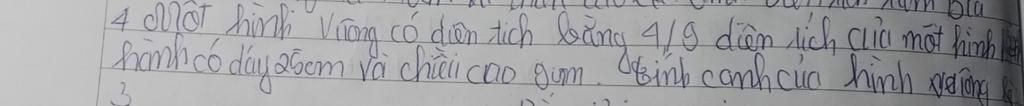 4 Một hình vuông có diện tích bằng 4/9 diện tích của một hình
hành có đáy 25cm và chiều cao 9cm. Tính cạnh của hình vuông
3